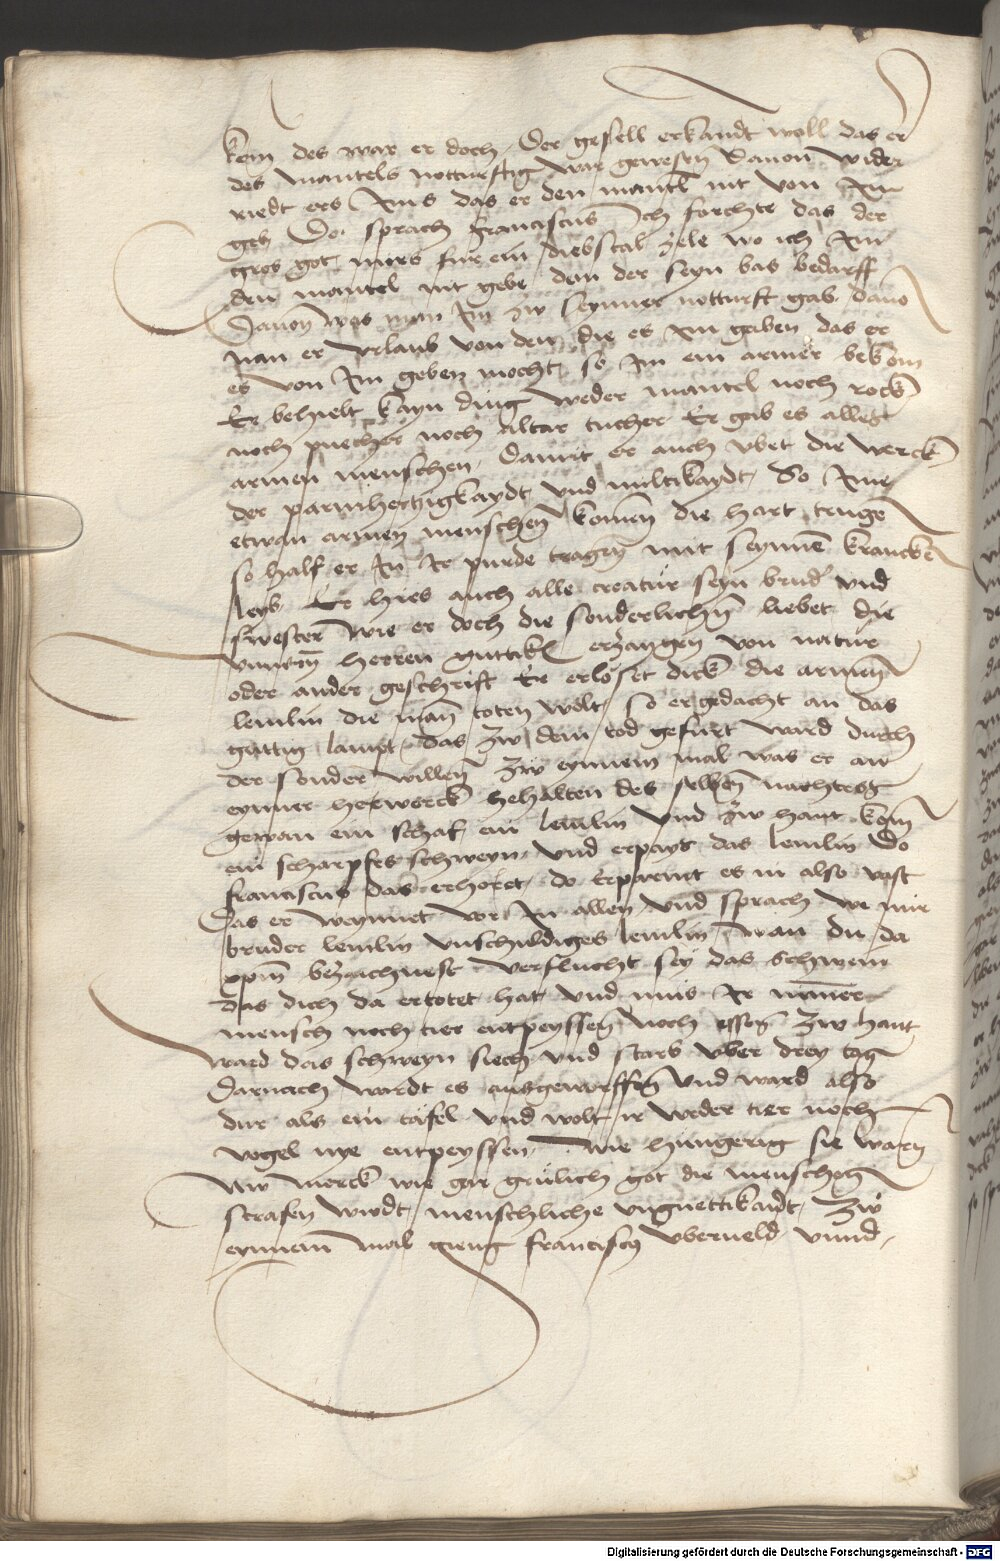 kem des war er doch Der gesell erkandt woll das er
des mantels notturftig war gewesen Dauon wider
riedt ers Im das er den mantl nit von Im
geb Do sprach franciscus Ich forchte das der
gros got mirs fur ein diebstal zele wo ich Im
den mantel nit gebe dem der seyn bas bedarff
Dauon was man Im zw seynner notturft gab dauo
nan er vrlaub von den die es Im gaben das er
es von Im geben mocht so Im ein armer bekom
Er behielt kayn ding weder mantel noch rock
noch puecher noch altar tucher Er gab es alles
armen menschen Damit er auch vbet die werck
der parmhertzigkaydt vnd miltikaydt So Ime
etwan armen menschen komen die hart truge
so half er In Ir purde tragen mit seynnē krancke
leyb Er hies auch alle creatur seyn brud vnd
swester wie er doch die sonderlichn liebet die
herren guttik erzaygen von natur
oder ander geschrift Er erloset dick die armen
lemlin die man toten wolt so er gedacht an das
guttig lampt das zw dem tod gefurt ward durch
der sonder willen Zw eynnem mal was er an
eynner herwerck behalten des selben nachtes
gewan ein schaf ein lemlin vnd zw hant kom
ein scharpfes schweyn vnd erpays das lemlin Do
franciscus das erhoret do Erparmt es in also vast
Das er weynnet vor In allen vnd sprach we mir
bruder lemlin vnschuldiges lemlin wan du da
xpm bezaichnest verflucht sey das schwein
das dich da ertotet hat vnd mus Ir nimer
mensch noch tier entpeyssen noch essen Zw hant
ward das schweyn siech vnd starb vber drey tag
Darnach wardt es ausgeworffen vnd ward also
dur als ein tafel vnd wolt ir weder tier noch
vogel nye entpeyssen wie hungerig sie waren
Nw merck wie gar grulich got die menschen
strafen wirdt menschliche vnguettikaidt Zw
eynnem mal gieng franciscus vberueld vnnd
Digitalisierung gefördert durch die Deutsche Forschungsgemeinschaft - DFG